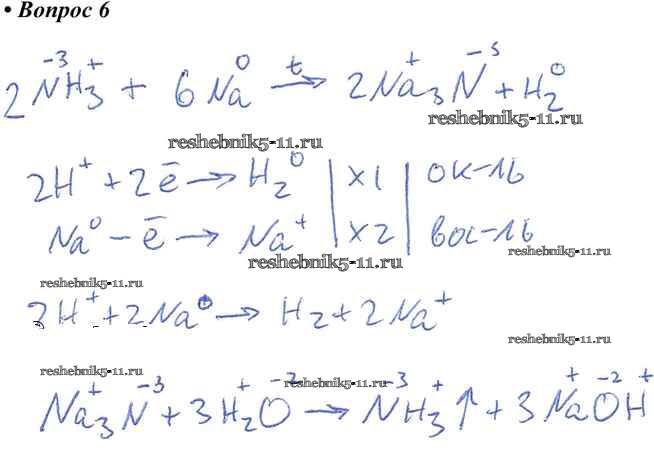 • Вопрос 6
2N⁻³H⁺₃ + 6Na⁰ →ᵗ 2Na⁺₃N⁻³ + H₂⁰
reshebnik5-11.ru
reshebnik5-11.ru
2H⁺ + 2ē → H₂⁰ | x1 | ок-ль
Na⁰ - ē → Na⁺ | x2 | вос-ль
reshebnik5-11.ru
reshebnik5-11.ru
reshebnik5-11.ru
2H⁺ + 2Na⁰ → H₂ + 2Na⁺
reshebnik5-11.ru
reshebnik5-11.ru
reshebnik5-11.ru
Na⁺₃N⁻³ + 3H⁺₂O⁻² → N⁻³H⁺₃↑ + 3Na⁺O⁻²H⁺